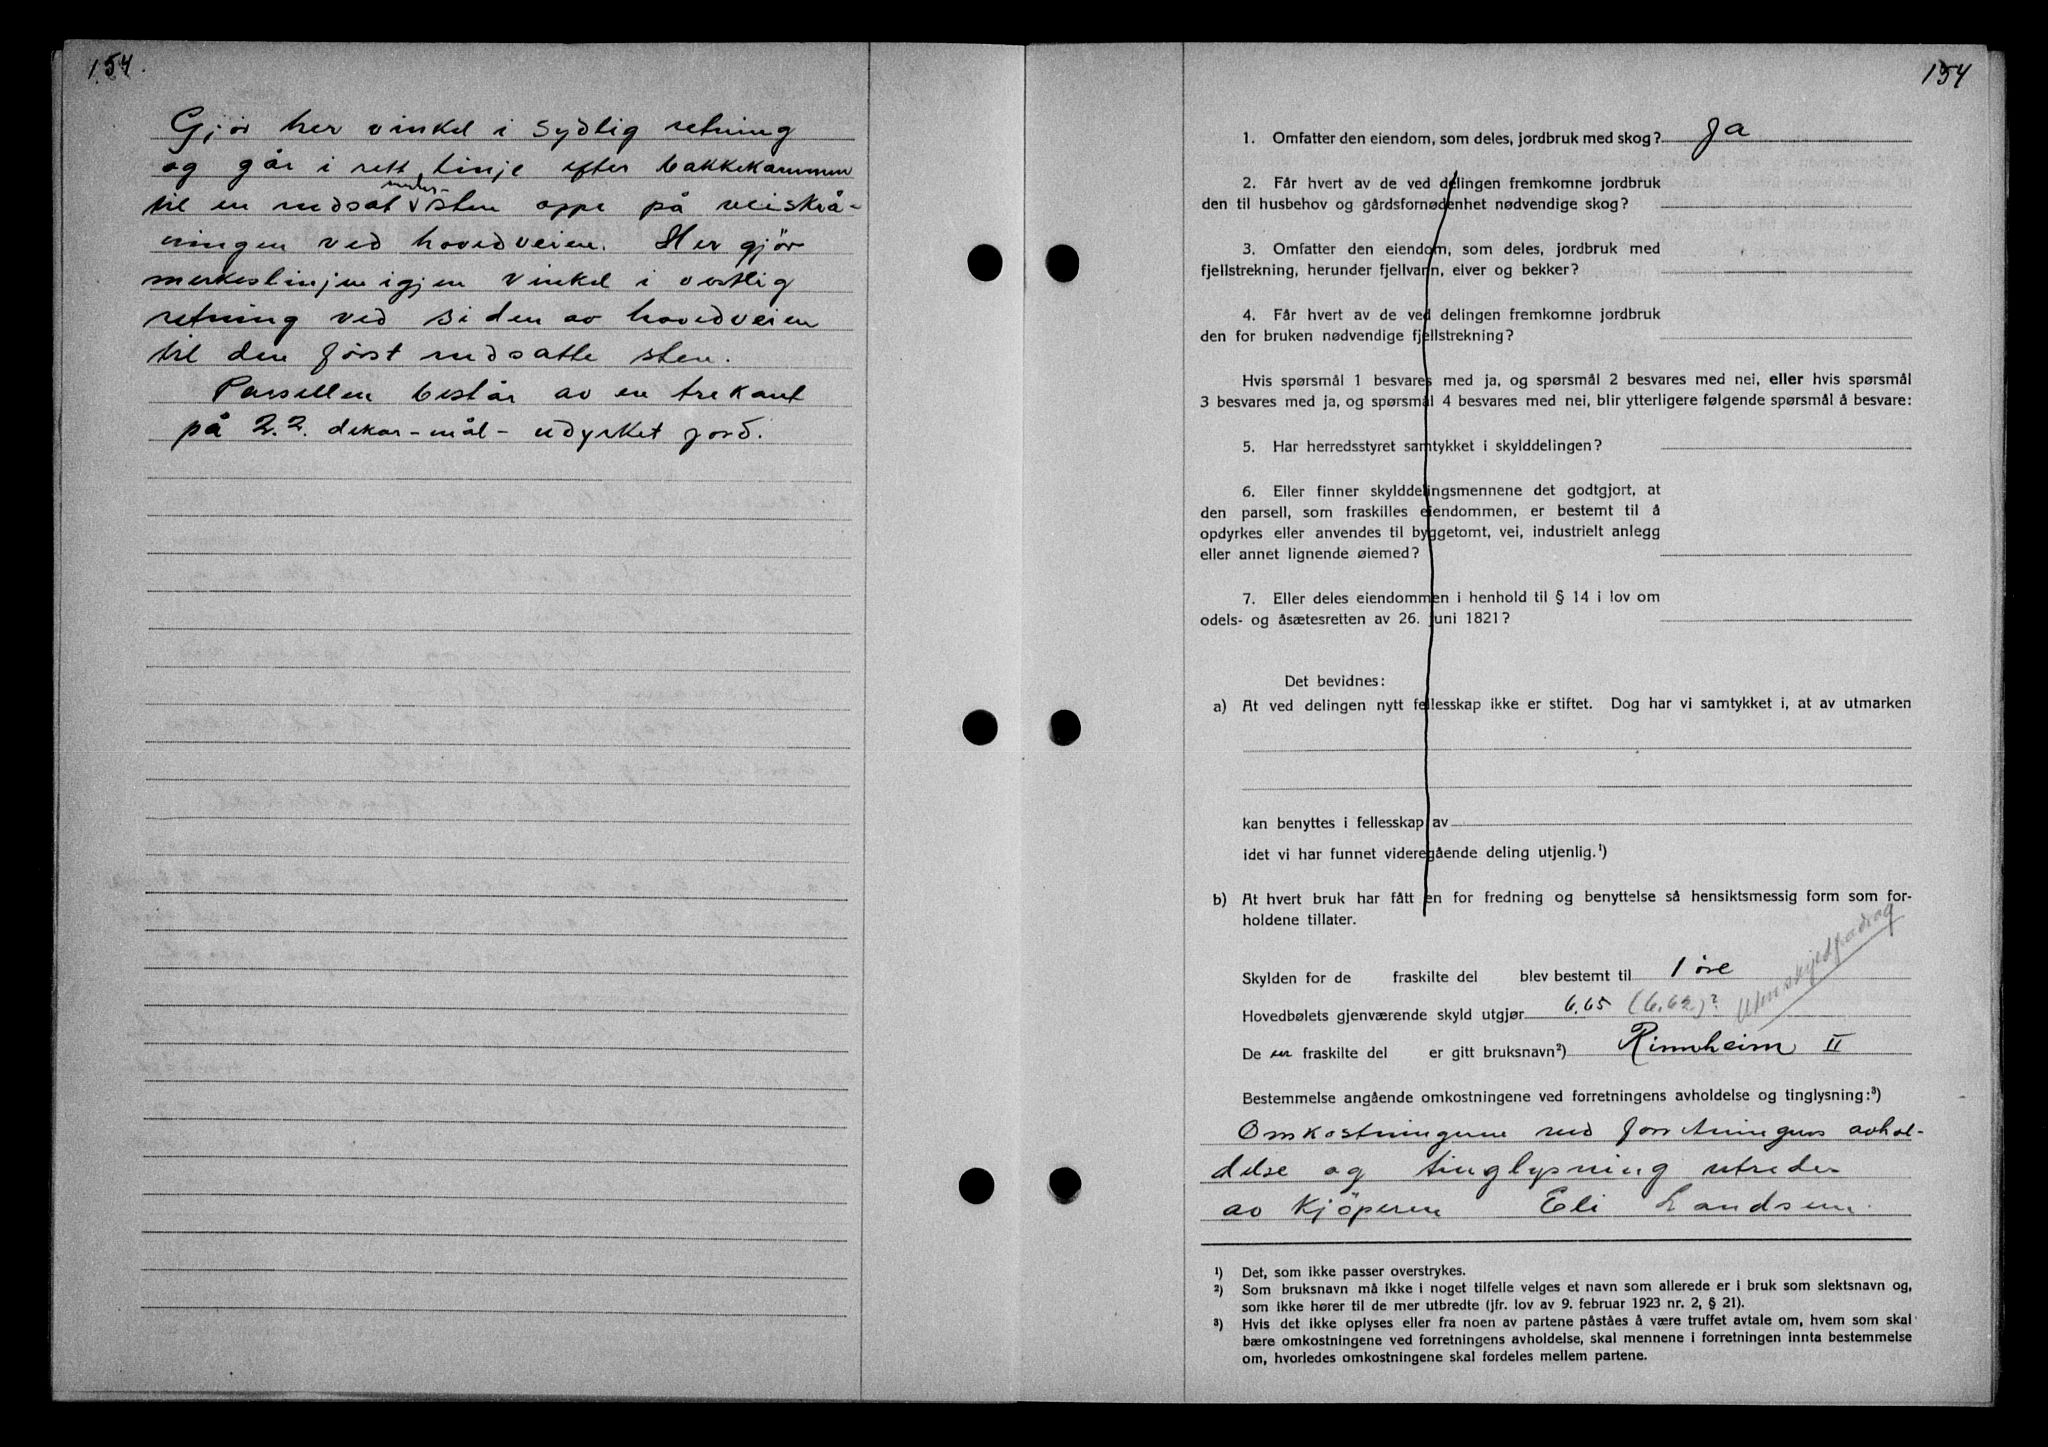 154.
Gjør her vinkel i sydlig retning
og går i rett linje efter bakkekammen
til en nedsat merke-sten oppe på veiskrå-
ningen ved hovedveien. Her gjör
merkeslinjen igjen vinkel i vestlig
retning ved siden av hovedveien
til den först nedsatte sten.
Parsellen består av en trekant
på 2.2. dekar-mål- udyrket jord.
154
1. Omfatter den eiendom, som deles, jordbruk med skog? Ja
2. Får hvert av de ved delingen fremkomne jordbruk
den til husbehov og gårdsfornødenhet nødvendige skog?
3. Omfatter den eiendom, som deles, jordbruk med
fjellstrekning, herunder fjellvann, elver og bekker?
4. Får hvert av de ved delingen fremkomne jordbruk
den for bruken nødvendige fjellstrekning?
Hvis spørsmål 1 besvares med ja, og spørsmål 2 besvares med nei, eller hvis spørsmål
3 besvares med ja, og spørsmål 4 besvares med nei, blir ytterligere følgende spørsmål å besvare:
5. Har herredsstyret samtykket i skylddelingen?
6. Eller finner skylddelingsmennene det godtgjort, at
den parsell, som fraskilles eiendommen, er bestemt til å
opdyrkes eller anvendes til byggetomt, vei, industrielt anlegg
eller annet lignende øiemed?
7. Eller deles eiendommen i henhold til § 14 i lov om
odels- og åsætesretten av 26. juni 1821?
Det bevidnes:
a) At ved delingen nytt fellesskap ikke er stiftet. Dog har vi samtykket i, at av utmarken
kan benyttes i fellesskap av
idet vi har funnet videregående deling utjenlig.¹)
b) At hvert bruk har fått en for fredning og benyttelse så hensiktsmessig form som for-
holdene tillater.
Skylden for de fraskilte del blev bestemt til 1 öre
Hovedbølets gjenværende skyld utgjør 6.65 (6.62)? Uten skyldfradrag
De en fraskilte del er gitt bruksnavn²) Rinnheim II
Bestemmelse angående omkostningene ved forretningens avholdelse og tinglysning:³)
Omkostningene ved forretningens avhol-
delse og tinglysning utreder
av Kjöperen Eli Landsem.
¹) Det, som ikke passer overstrykes.
²) Som bruksnavn må ikke i noget tilfelle velges et navn som allerede er i bruk som slektsnavn og,
som ikke hører til de mer utbredte (jfr. lov av 9. februar 1923 nr. 2, § 21).
³) Hvis det ikke oplyses eller fra noen av partene påståes å være truffet avtale om, hvem som skal
bære omkostningene ved forretningens avholdelse, skal mennene i forretningen innta bestemmelse
om, hvorledes omkostningene skal fordeles mellem partene.